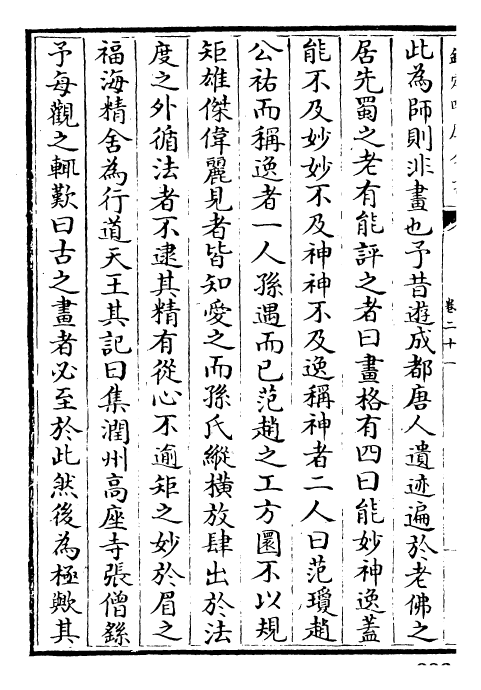 此為師則非畫也予昔遊成都唐人遺迹遍於老佛之
居先蜀之老有能評之者曰畫格有四曰能妙神逸蓋
能不及妙妙不及神神不及逸稱神者二人曰范瓊趙
公祐而稱逸者一人孫遇而已范趙之工方圜不以規
矩雄傑偉麗見者皆知愛之而孫氏縱橫放肆出於法
度之外循法者不逮其精有從心不逾矩之妙於眉之
福海精舍為行道天王其記曰集潤州高座寺張僧繇
予每觀之輒歎曰古之畫者必至於此然後為極歟其
卷二十一